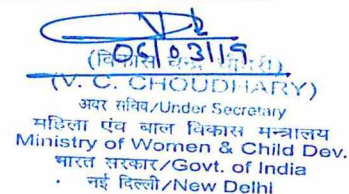 06/03/19
(विकास चन्द्र चौधरी)
(V. C. CHOUDHARY)
अवर सचिव/Under Secretary
महिला एंव बाल विकास मन्त्रालय
Ministry of Women & Child Dev.
भारत सरकार/Govt. of India
नई दिल्ली/New Delhi